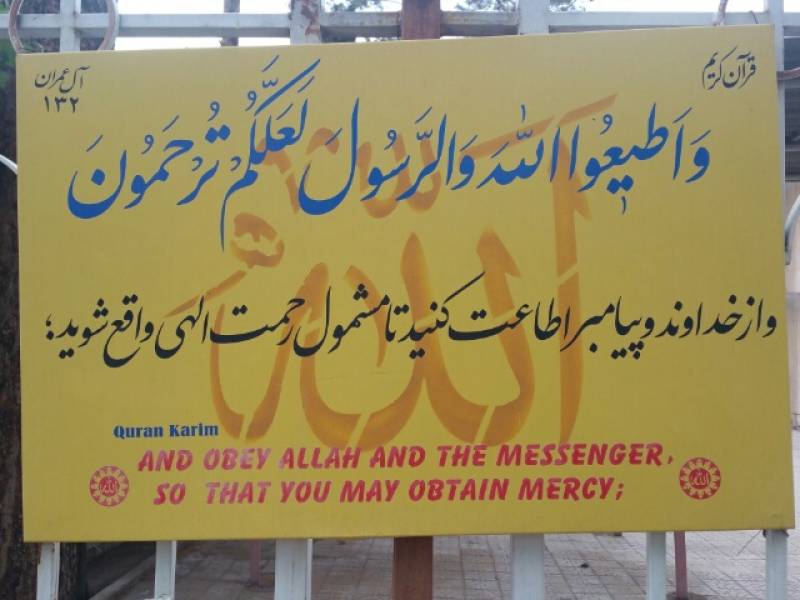 قرآن کریم
آل عمران
۱۳۲
وَاَطیعُوا اللّٰهَ وَالرَّسُولَ لَعَلَّکُمْ تُرْحَمُونَ
و از خداوند و پیامبر اطاعت کنید تا مشمول رحمت الهی واقع شوید؛
Quran Karim
AND OBEY ALLAH AND THE MESSENGER,
SO THAT YOU MAY OBTAIN MERCY;
الله
الله